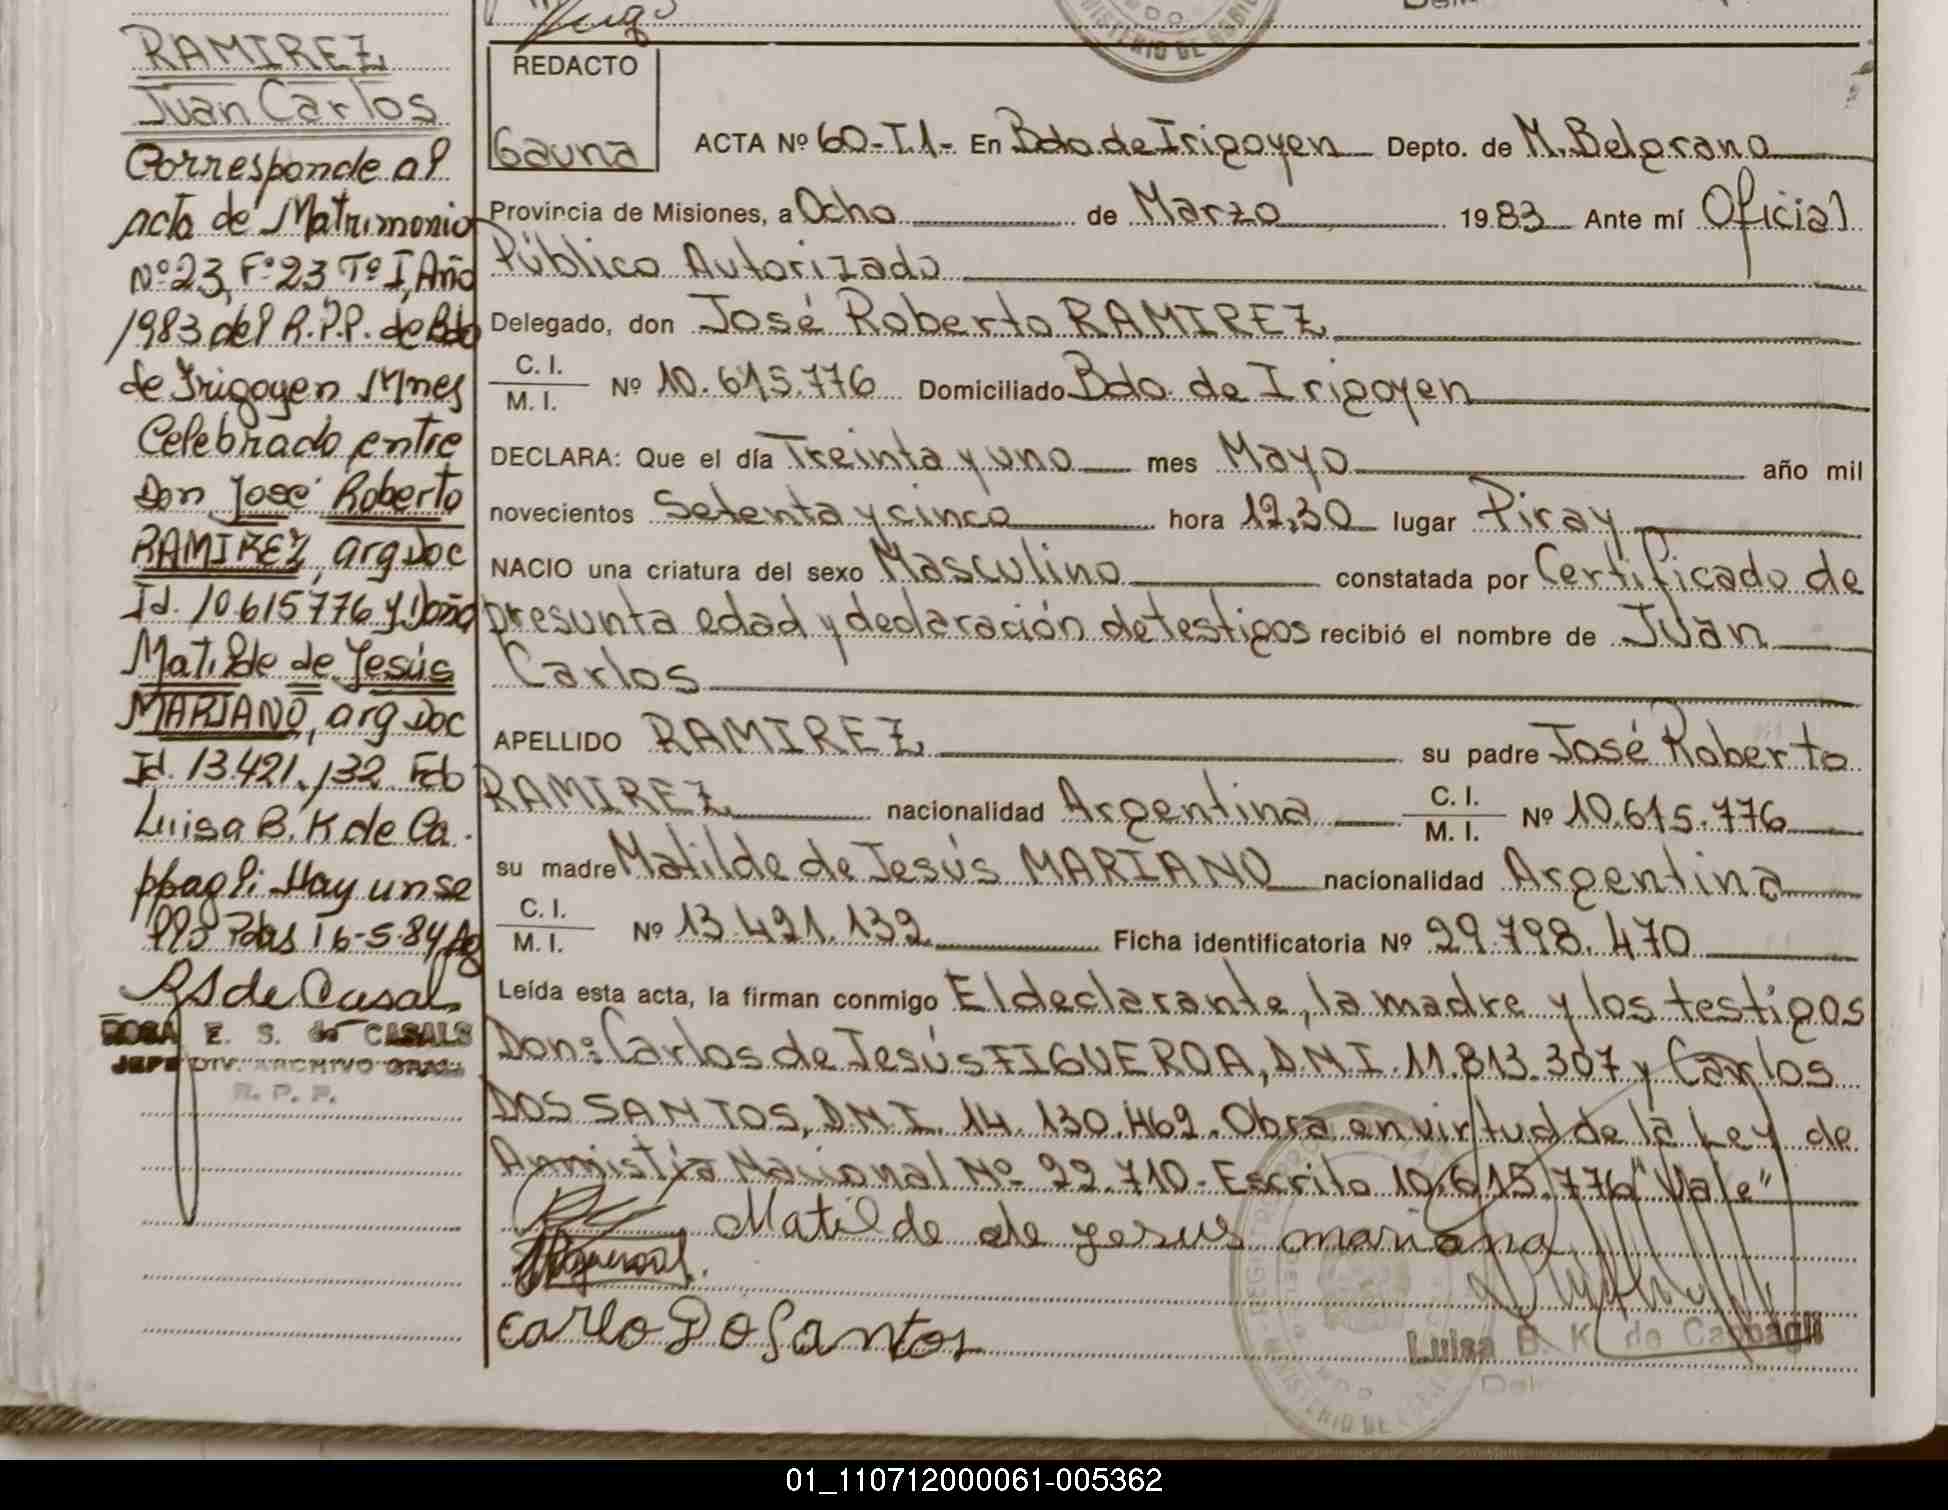 RAMIREZ
Juan Carlos
Corresponde al
acta de Matrimonio
Nº 23, Fº 23 Tº I, Año
1983 del R.P.P. de Bdo
de Irigoyen Mnes
Celebrado entre
Don José Roberto
RAMIREZ, arg Doc
Id. 10.615776 y Doña
Matilde de Jesús
MARIANO, arg Doc
Id. 13.421.132 Fdo
Luisa B. K de Ca
ppagli Hay un se
llo Pdas 16-5-84
RS de Casals
ROSA E. S. de CASALS
JEFE DIV. ARCHIVO GRAL.
R. P. P.
MINISTERIO DE
REDACTO
Gauna
ACTA Nº 60-T.1- En Bdo. de Irigoyen Depto. de M. Belgrano
Provincia de Misiones, a Ocho de Marzo 1983 Ante mí Oficial
Público Autorizado
Delegado, don José Roberto RAMIREZ
C. I. / M. I. Nº 10.615.776 Domiciliado Bdo. de Irigoyen
DECLARA: Que el día Treinta y uno mes Mayo año mil
novecientos Setenta y cinco hora 12,30 lugar Piray
NACIO una criatura del sexo Masculino constatada por Certificado de
presunta edad y declaración de testigos recibió el nombre de Juan
Carlos
APELLIDO RAMIREZ su padre José Roberto
RAMIREZ nacionalidad Argentina C. I. / M. I. Nº 10.615.776
su madre Matilde de Jesús MARIANO nacionalidad Argentina
C. I. / M. I. Nº 13.421.132 Ficha identificatoria Nº 29.798.470
Leída esta acta, la firman conmigo El declarante, la madre y los testigos
Don: Carlos de Jesús FIGUEROA, D.N.I. 11.813.307 y Carlos
DOS SANTOS, D.N.I. 14.130.469. Obra en virtud de la Ley de
Amnistía Nacional Nº 22.710- Escrito 10.615.776 "Vale"
Matilde de yesus mariano
Carlo Do Santos
Luisa B. K. de Cappagli
01_110712000061-005362